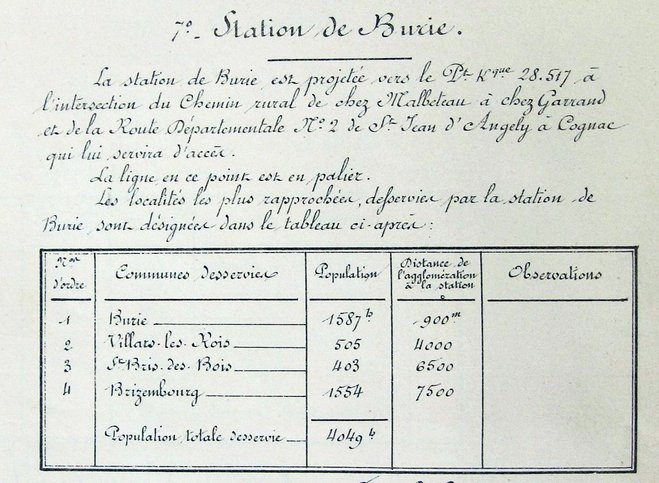 7º_ Station de Burie.
La station de Burie est projetée vers le Pt Kque 28.517 à
l'intersection du Chemin rural de chez Malbeteau à chez Garrand
et de la Route Départementale Nº 2 de St Jean d'Angely à Cognac
qui lui servira d'accès.
La ligne en ce point est en palier.
Les localités les plus rapprochées, desservies par la station de
Burie, sont désignées dans le tableau ci-après:
Nos d'ordre | Communes desservies | Population | Distance de l'agglomération à la station | Observations
1 | Burie | 1587h | 900m
2 | Villars-les-Rois | 505 | 4000
3 | St Bris-des-Bois | 403 | 6500
4 | Brizembourg | 1554 | 7500
Population totale desservie | 4049h